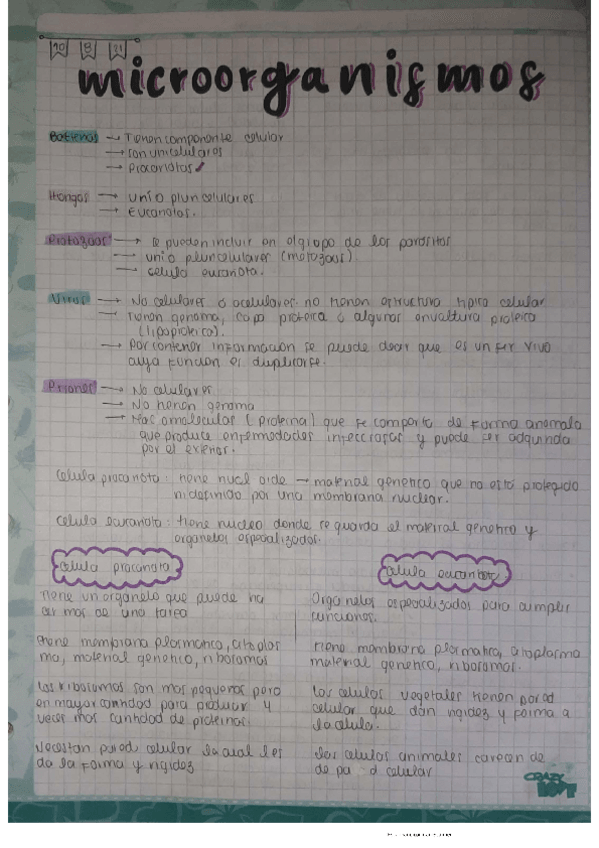 20 8 21
microorganismos
Baterias → Tienen componente celular
→ son unicelulares
→ Procariotas
Hongos → unio pluricelulares
→ Eucariotas.
Protozoos → se pueden incluir en el grupo de los parasitos
→ unio pluricelulares (metazoos)
→ celula eucariota.
Virus → No celulares o acelulares. no tienen estructura tipica celular
→ Tienen genoma, capa proteica o algunos envoltura proteica
(lipoproteica).
→ Por contener informacion se puede decir que es un ser vivo
cuya funcion es duplicarse.
Priones → No celulares
→ No tienen genoma
→ Macromoleculas (proteina) que se comporta de forma anomala
que produce enfermedades infecciosas y puede ser adquirida
por el exterior.
celula procariota: tiene nucleoide → material genetico que no está protegido
ni definido por una membrana nuclear.
celula eucariota: tiene nucleo donde se guarda el material genetico y
organelos especializados.
celula procariota
celula eucariota
Tiene un organelo que puede ha
cer mas de una tarea
Organelos especializados para cumplir
funciones.
tiene membrana plasmatica, citoplas
ma, material genetico, ribosomas
tiene membrana plasmatica, citoplasma
material genetico, ribosomas.
Los ribosomas son mas pequeños pero
en mayor cantidad para producir y
veces mas cantidad de proteinas.
las celulas vegetales tienen pared
celular que dan rigidez y forma a
la celula.
Necesitan pared celular la cual les
da la forma y rigidez
las celulas animales carecen de
de pa d celular
CRAZY